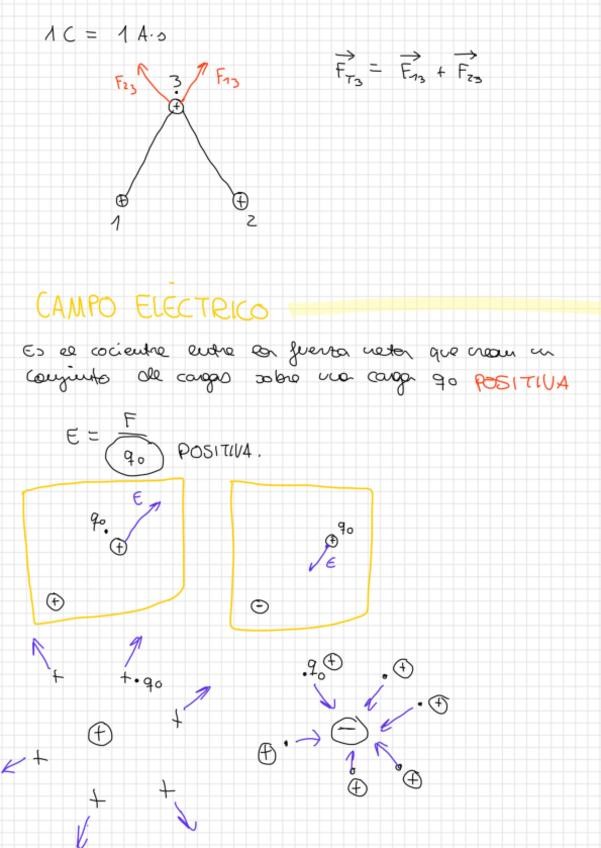 1 C = 1 A·s
F23 3 F13
FT3 = F13 + F23
1 2
CAMPO ELÉCTRICO
Es el cociente entre la fuerza neta que crean un
conjunto de cargas sobre una carga q0 POSITIVA
E = F
q0 POSITIVA.
q0 E
+
+
q0
+
E
-
+
+ q0
+
+
+
+
+
q0 +
+
+
-
+
+
+